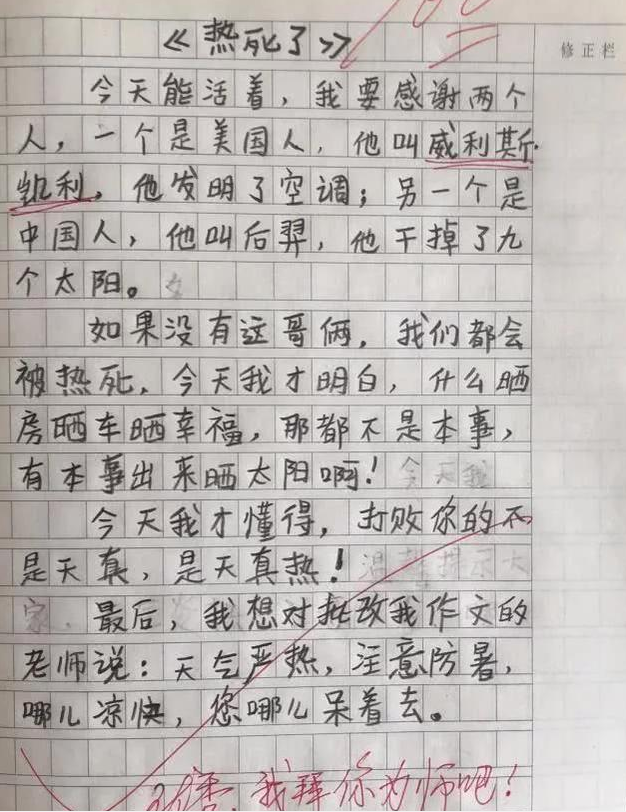 《热死了》
修正栏
今天能活着，我要感谢两个
人，一个是美国人，他叫威利斯·
凯利，他发明了空调；另一个是
中国人，他叫后羿，他干掉了九
个太阳。
如果没有这哥俩，我们都会
被热死，今天我才明白，什么晒
房晒车晒幸福，那都不是本事，
有本事出来晒太阳啊！今天我
今天我才懂得，打败你的不
是天真，是天真热！温馨提示大
家．最后，我想对批改我作文的
老师说：天气严热，注意防暑，
哪儿凉快，您哪儿呆着去。
我拜你为师吧！